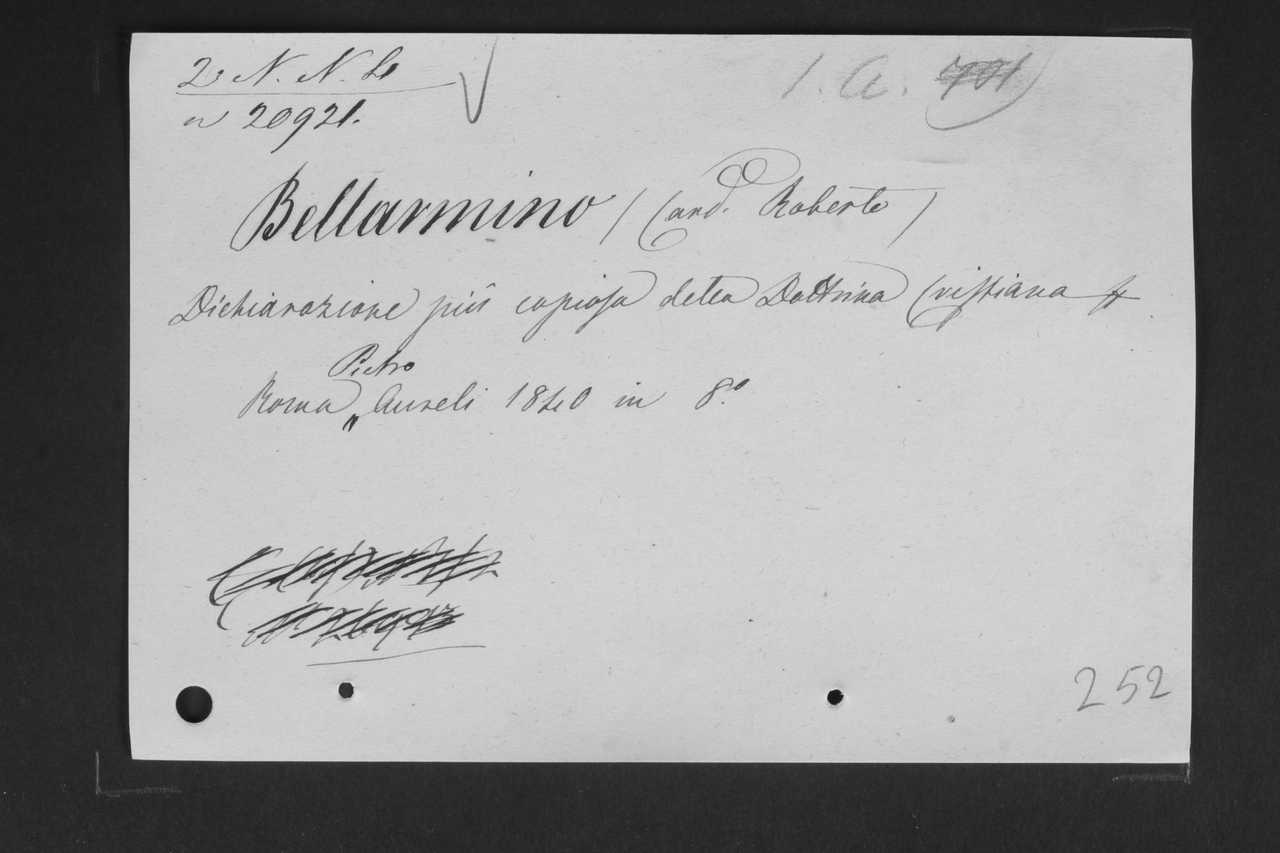 2. N. N. 4
n 20921.
1. a.
Bellarmino / Card. Roberto /
Dichiarazione più copiosa della Dottrina Cristiana
Pietro
Roma „ Aureli 1840 in 8.º
252